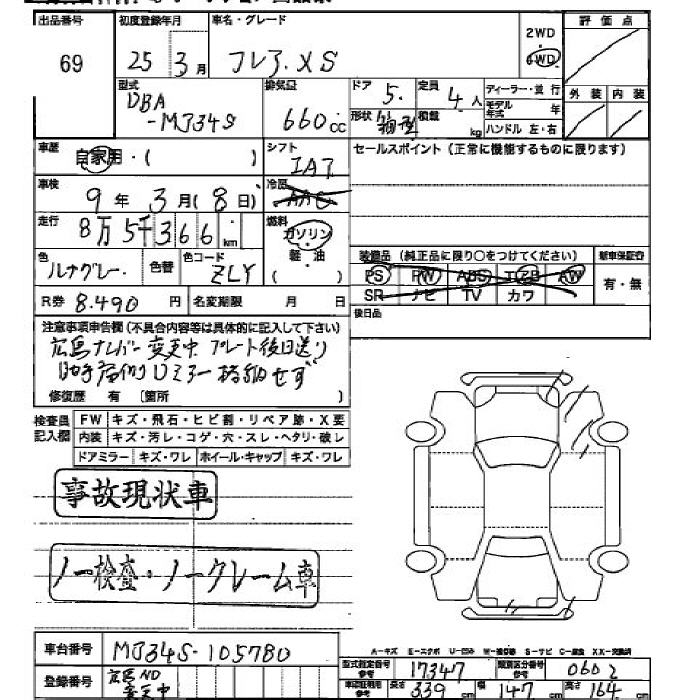 出品番号 初度登録年月 車名・グレード 評価点
69 25 3月 フレア.XS 2WD 4WD
型式 排気量 ドア 定員 ディーラー・並行 外装 内装
DBA-MJ34S 660cc 5. 4人 モデル年式 年
形状 箱型 積載 kg ハンドル 左・右
車歴 自家用・( ) シフト IAT セールスポイント(正常に機能するものに限ります)
車検 9年3月(8日) 冷房 AAC
走行 8万5千366km 燃料 ガソリン 軽油 ( )
色 ルナグレー. 色替 色コード ZLY
装備品(純正品に限り○をつけてください) 新車保証書
PS PW ABS エアB AW 有・無
SR ナビ TV カワ
R券 8.490円 名変期限 月 日 後日品
注意事項申告欄(不具合内容等は具体的に記入して下さい)
広島ナンバー変更中 プレート後日送り
助手席側Uミラー格納せず
修復歴 有 [箇所 ]
検査員記入欄 FW キズ・飛石・ヒビ割・リペア跡・X要
内装 キズ・汚レ・コゲ・穴・スレ・ヘタリ・破レ
ドアミラー キズ・ワレ ホイール・キャップ キズ・ワレ
事故現状車
ノー検査・ノークレーム車
A-キズ E-エクボ U-凹み W-補修跡 S-サビ C-腐食 XX-交換済
車台番号 MJ34S-105780 型式指定番号 参考 17347 類別区分番号 参考 0602
登録番号 広島ND 変更中 車検証記載 参考 長さ 339cm 幅 147cm 高さ 164cm